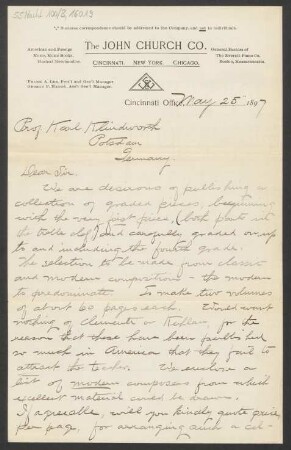 Business correspondence should be addressed to the Company, and not to individuals.
The JOHN CHURCH CO.
American and Foreign
Music, Music Books,
Musical Merchandise.
General Factors of
The Everett Piano Co.
Boston, Massachusetts.
CINCINNATI. NEW YORK. CHICAGO.
Cincinnati Office, May 25 1897
Prof Karl Klindworth
Potsdam
Germany.
Dear Sir.
We are desirous of publishing a
collection of graded pieces, beginning
with the very first piece, (both parts in
the treble clef) and carefully graded on up
to and including the fourth grade.
The selection to be made from classic
and modern compositions — the modern
to predominate. To make two volumes
of about 60 pages each. Would want
nothing of Clementi or Köhler, for the
reason that these have been published
so much in America that they fail to
attract the teacher. We enclose a
list of modern composers from which
excellent material could be drawn.
If agreeable, will you kindly quote price
per page, for arranging such a col-